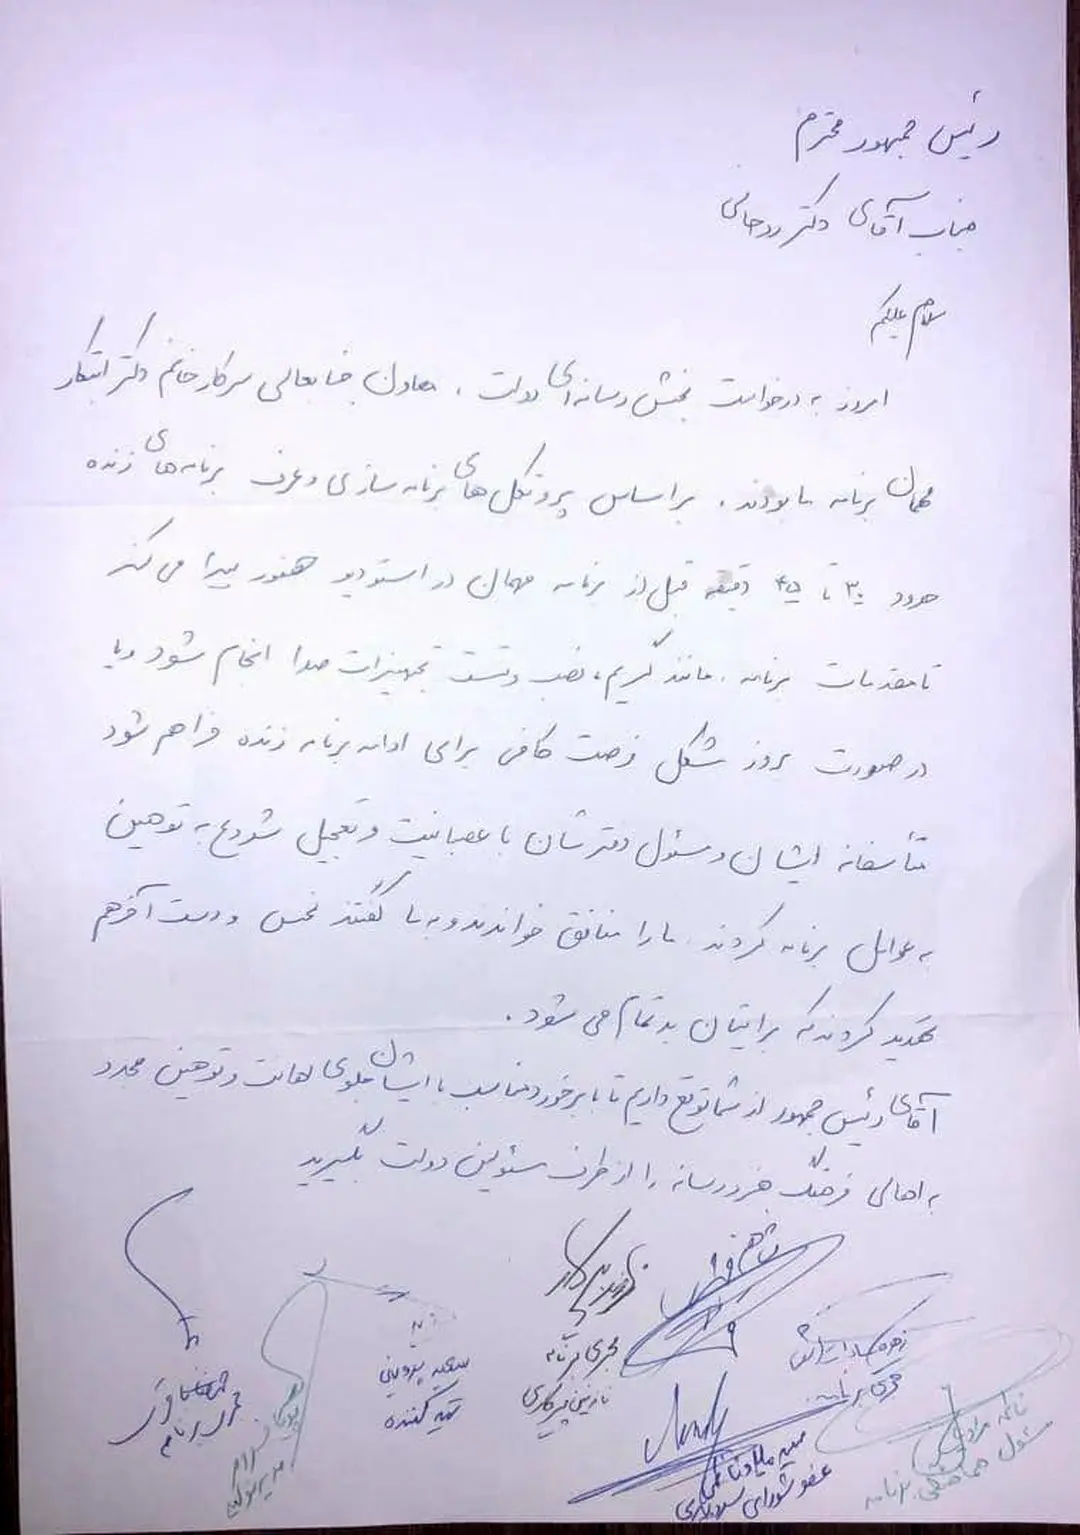 رئیس جمهور محترم
جناب آقای دکتر روحانی
سلام علیکم
امروز به درخواست بخش رسانه‌ای دولت، معاون جنابعالی سرکار خانم دکتر ابتکار
مهمان برنامه ما بودند. براساس پروتکل های برنامه سازی و عرف برنامه های زنده
حدود ۳۰ تا ۴۵ دقیقه قبل از برنامه مهمان در استودیو حضور پیدا می کند
تا مقدمات برنامه، مانند گریم، نصب و تست تجهیزات صدا انجام شود و یا
در صورت بروز مشکل فرصت کافی برای ادامه برنامه زنده فراهم شود
متأسفانه ایشان و مسئول دفترشان با عصبانیت و تعجیل شروع به توهین
به عوامل برنامه کردند. ما را منافق خواندند و به ما گفتند نجس و دست آخر هم
تهدید کردند که برایتان بد تمام می شود.
آقای رئیس جمهور از شما توقع داریم تا با برخورد مناسب با ایشان جلوی اهانت و توهین مجدد
به اهالی فرهنگ هنر و رسانه را از طرف مسئولین دولت بگیرید
مجری برنامه
نازنین پیرکاری
مجری برنامه
سعید پروینی
تهیه کننده
مجری برنامه
عضو شورای سردبیری
مسئول هماهنگی برنامه
مدیر تولید